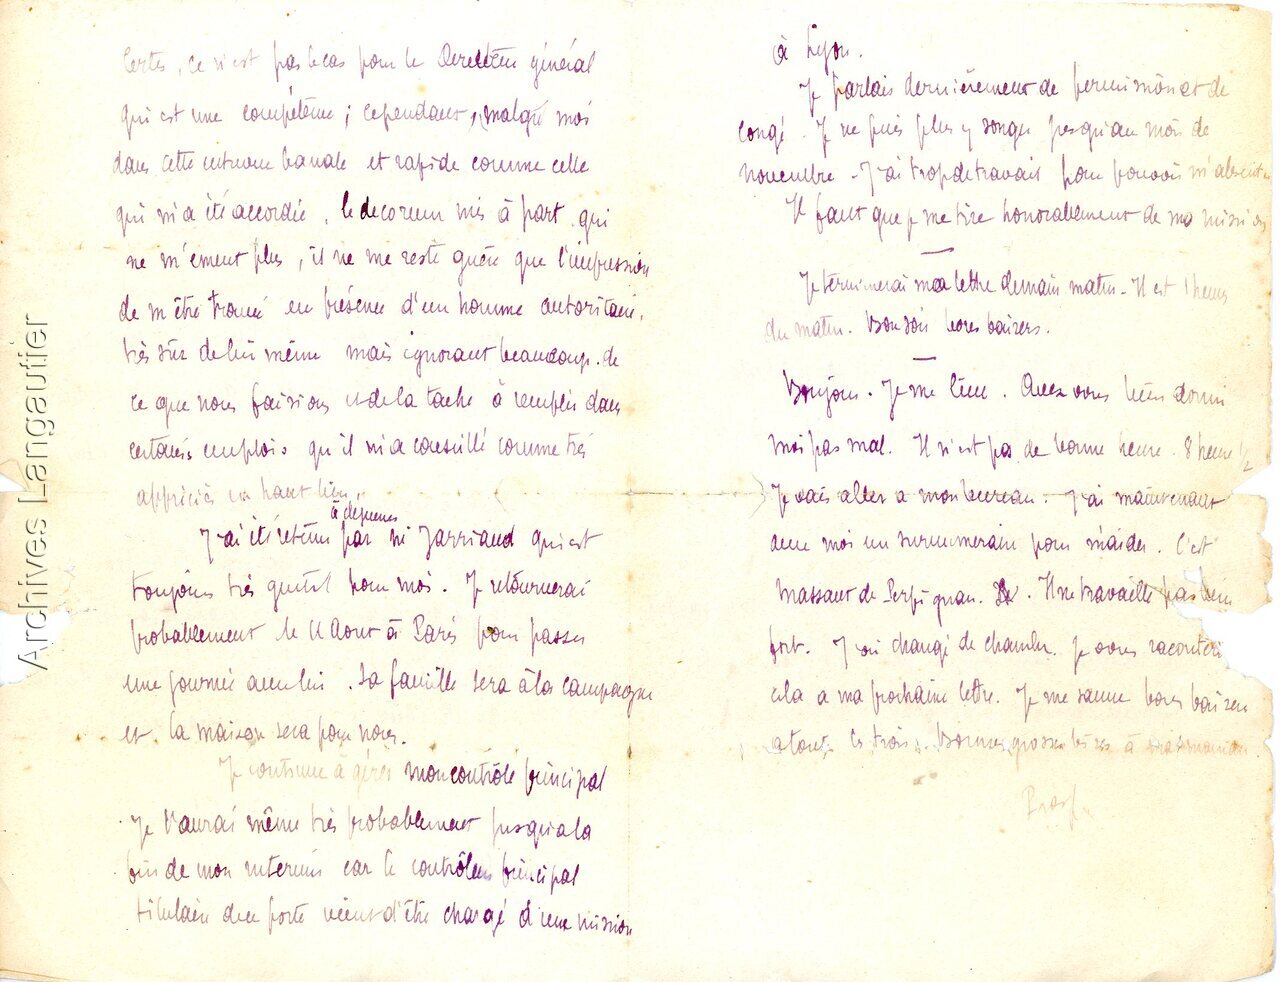 Certes, ce n'est pas le cas pour le Directeur général
qui est une compétence ; cependant, malgré moi
dans cette entrevue banale et rapide comme celle
qui m'a été accordée, le decorum mis à part qui
ne m'émeut plus, il ne me reste guère que l'impression
de m'être trouvé en présence d'un homme autoritaire,
très sûr de lui même mais ignorant beaucoup de
ce que nous faisions et de la tache à remplir dans
certains emplois qu'il m'a conseillé comme très
appréciés en haut lieu.
J'ai été retenu à dejeuner par M Jarriaud qui est
toujours très gentil pour moi. Je retournerai
probablement le 11 Aout à Paris pour passer
une journée avec lui. Sa famille sera à la campagne
et la maison sera pour nous.
Je continue à gérer mon contrôle principal
Je l'aurai même très probablement jusqu'à la
fin de mon interim car le contrôleur principal
titulaire du poste vient d'être chargé d'une mission
à Lyon.
Je parlais dernièrement de permission et de
congé. Je ne puis plus y songer jusqu'au mois de
novembre - J'ai trop de travail pour pouvoir m'absenter
Il faut que je me tire honorablement de ma mission
Je terminerai ma lettre demain matin - Il est 1 heure
du matin. Bonsoir bons baisers.
Bonjour. Je me lève. Avez vous bien dormi
moi pas mal. Il n'est pas de bonne heure. 8 heures 1/2
Je vais aller a mon bureau. J'ai maintenant
avec moi un surnumeraire pour m'aider. C'est
Massaut de Perpignan. Il ne travaille pas bien
fort. J'ai changé de chambre. Je vous raconterai
cela a ma prochaine lettre. Je me sauve bons baisers
a toutes les trois. Bonnes grosses bises à maman
Archives Langautier